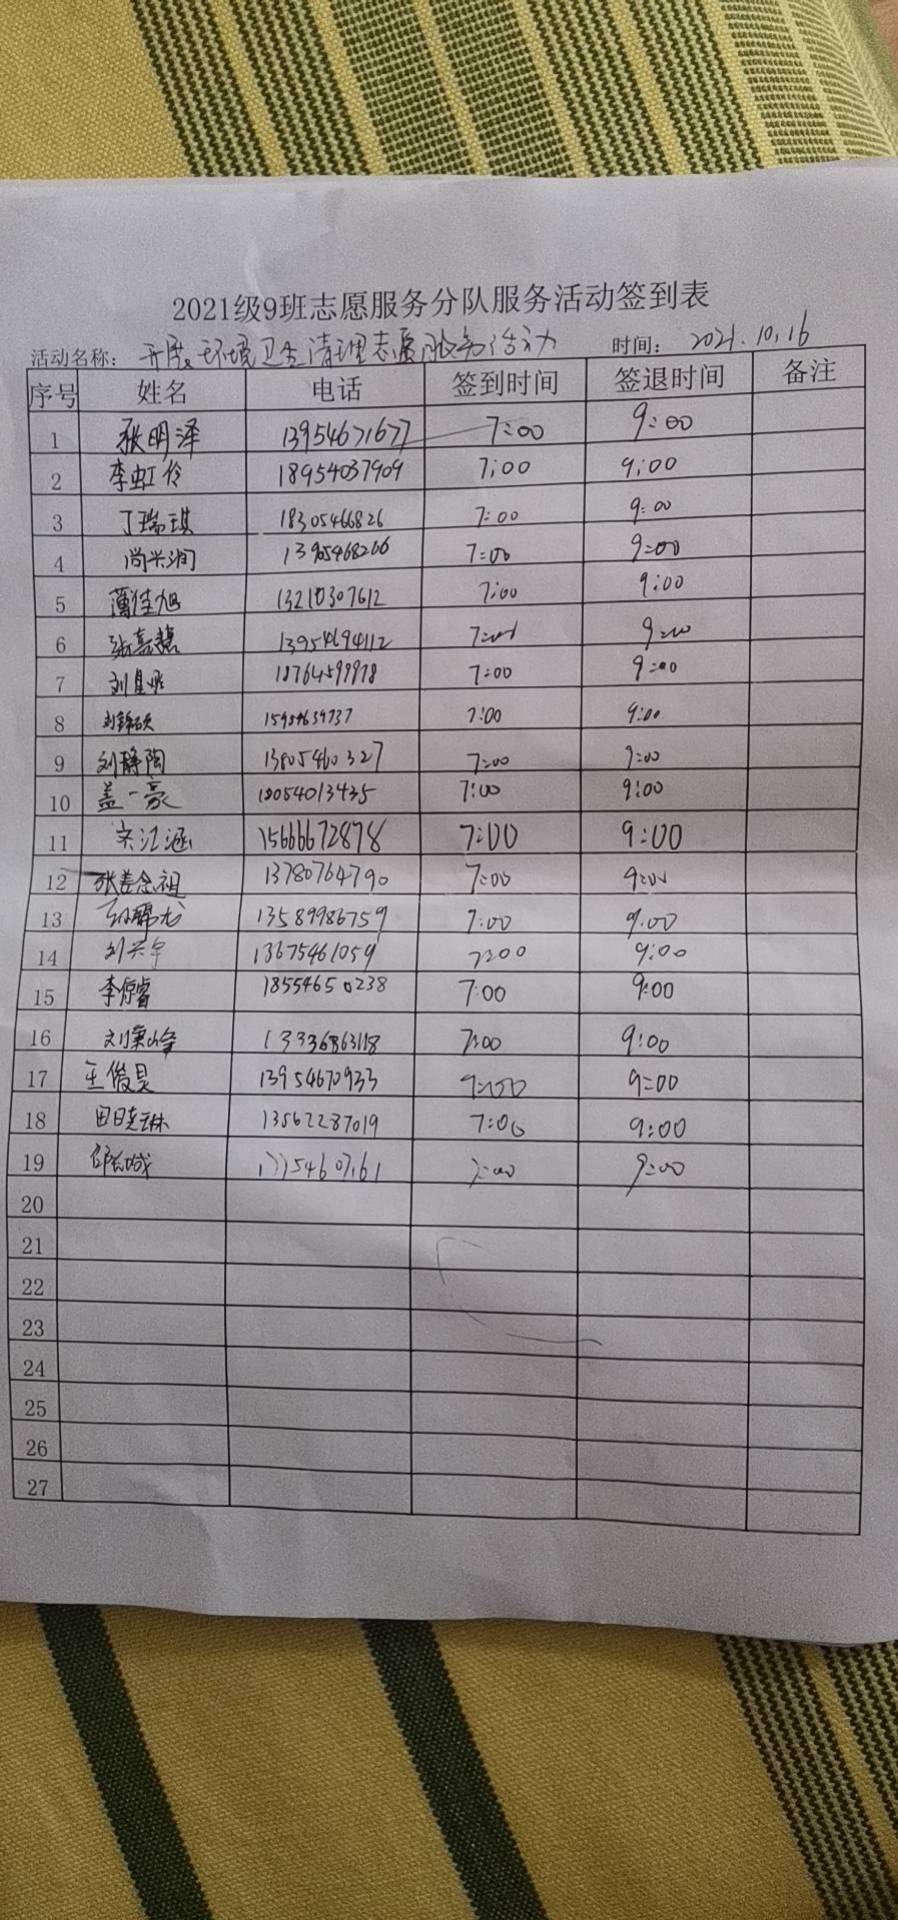 2021级9班志愿服务分队服务活动签到表
活动名称: 开展环境卫生清理志愿服务活动 时间: 2021.10.16
序号 姓名 电话 签到时间 签退时间 备注
1 张明泽 13954671677 7:00 9:00
2 李虹伶 18954037909 7:00 9:00
3 丁瑞琪 18305466826 7:00 9:00
4 尚兴润 13905468266 7:00 9:00
5 薄佳旭 13210307612 7:00 9:00
6 张嘉慧 13954694112 7:00 9:00
7 18764599978 7:00 9:00
8 刘锦硕 15954639737 7:00 9:00
9 刘静陶 13805460327 7:00 9:00
10 盖一豪 18054013435 7:00 9:00
11 宋江涵 15666672878 7:00 9:00
12 张姜念祖 13780764790 7:00 9:00
13 13589986759 7:00 9:00
14 刘兴宇 13675461059 7:00 9:00
15 李倞睿 18554650238 7:00 9:00
16 13336863118 7:00 9:00
17 王俊昊 13954670933 9:00
18 田晓琳 13562287019 7:00 9:00
19 7:00 9:00
20
21
22
23
24
25
26
27